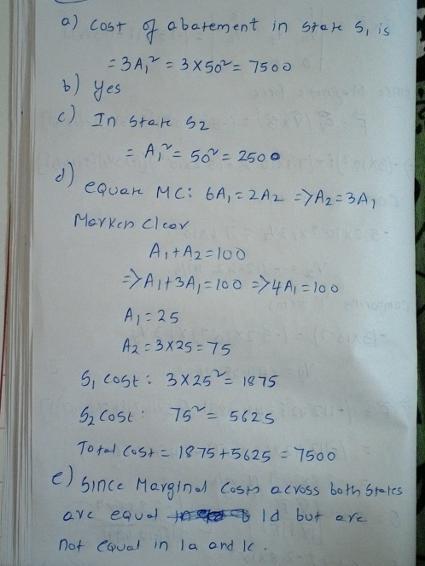 a) cost of abatement in state S₁ is
= 3A₁² = 3 × 50² = 7500
b) Yes
c) In state S2
= A₁² = 50² = 2500
d) equate MC: 6A₁ = 2A2 => A2 = 3A₁
Market Clear
A₁ + A2 = 100
=> A₁ + 3A₁ = 100 => 4A₁ = 100
A₁ = 25
A2 = 3 × 25 = 75
S₁ cost: 3 × 25² = 1875
S2 cost: 75² = 5625
Total cost = 1875 + 5625 = 7500
e) Since Marginal Costs across both states
are equal 1d but are
not equal in 1a and 1c.